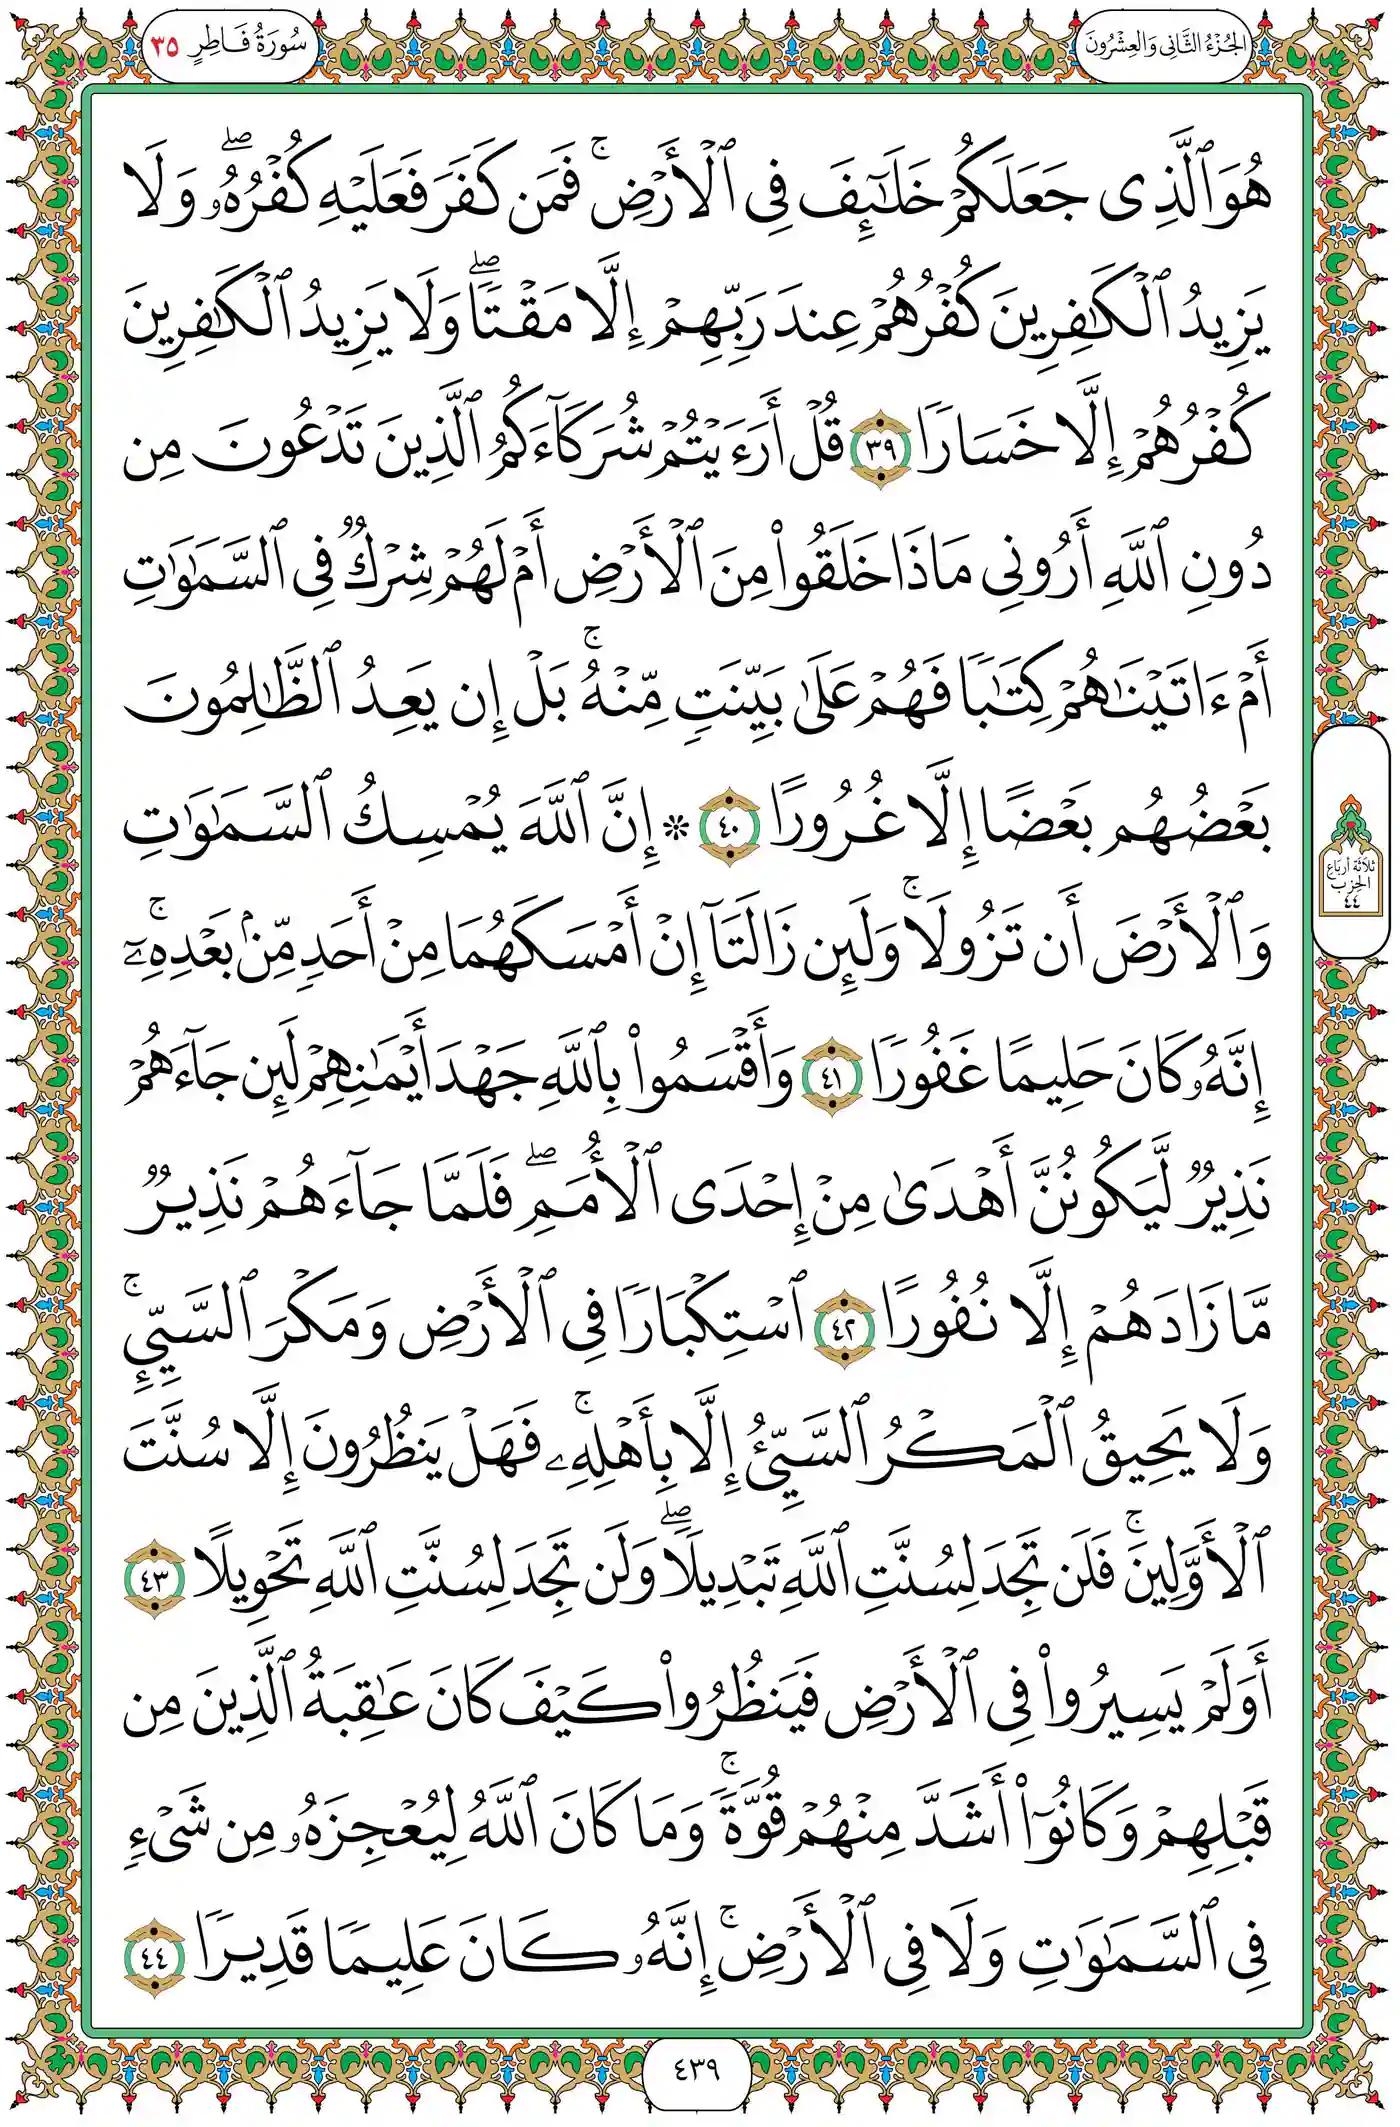 الجُزْءُ الثَّانِي وَالعِشْرُونَ
سُورَةُ فَاطِرٍ ٣٥
هُوَ ٱلَّذِى جَعَلَكُمْ خَلَـٰٓئِفَ فِى ٱلْأَرْضِ ۚ فَمَن كَفَرَ فَعَلَيْهِ كُفْرُهُۥ ۖ وَلَا
يَزِيدُ ٱلْكَـٰفِرِينَ كُفْرُهُمْ عِندَ رَبِّهِمْ إِلَّا مَقْتًا ۖ وَلَا يَزِيدُ ٱلْكَـٰفِرِينَ
كُفْرُهُمْ إِلَّا خَسَارًا ٣٩ قُلْ أَرَءَيْتُمْ شُرَكَآءَكُمُ ٱلَّذِينَ تَدْعُونَ مِن
دُونِ ٱللَّهِ أَرُونِى مَاذَا خَلَقُوا۟ مِنَ ٱلْأَرْضِ أَمْ لَهُمْ شِرْكٌ فِى ٱلسَّمَـٰوَٰتِ
أَمْ ءَاتَيْنَـٰهُمْ كِتَـٰبًا فَهُمْ عَلَىٰ بَيِّنَتٍ مِّنْهُ ۚ بَلْ إِن يَعِدُ ٱلظَّـٰلِمُونَ
بَعْضُهُم بَعْضًا إِلَّا غُرُورًا ٤٠ * إِنَّ ٱللَّهَ يُمْسِكُ ٱلسَّمَـٰوَٰتِ
وَٱلْأَرْضَ أَن تَزُولَا ۚ وَلَئِن زَالَتَآ إِنْ أَمْسَكَهُمَا مِنْ أَحَدٍ مِّنۢ بَعْدِهِۦٓ ۚ
إِنَّهُۥ كَانَ حَلِيمًا غَفُورًا ٤١ وَأَقْسَمُوا۟ بِٱللَّهِ جَهْدَ أَيْمَـٰنِهِمْ لَئِن جَآءَهُمْ
نَذِيرٌ لَّيَكُونُنَّ أَهْدَىٰ مِنْ إِحْدَى ٱلْأُمَمِ ۖ فَلَمَّا جَآءَهُمْ نَذِيرٌ
مَّا زَادَهُمْ إِلَّا نُفُورًا ٤٢ ٱسْتِكْبَارًا فِى ٱلْأَرْضِ وَمَكْرَ ٱلسَّيِّئِ ۚ
وَلَا يَحِيقُ ٱلْمَكْرُ ٱلسَّيِّئُ إِلَّا بِأَهْلِهِۦ ۚ فَهَلْ يَنظُرُونَ إِلَّا سُنَّتَ
ٱلْأَوَّلِينَ ۚ فَلَن تَجِدَ لِسُنَّتِ ٱللَّهِ تَبْدِيلًا ۖ وَلَن تَجِدَ لِسُنَّتِ ٱللَّهِ تَحْوِيلًا ٤٣
أَوَلَمْ يَسِيرُوا۟ فِى ٱلْأَرْضِ فَيَنظُرُوا۟ كَيْفَ كَانَ عَـٰقِبَةُ ٱلَّذِينَ مِن
قَبْلِهِمْ وَكَانُوٓا۟ أَشَدَّ مِنْهُمْ قُوَّةً ۚ وَمَا كَانَ ٱللَّهُ لِيُعْجِزَهُۥ مِن شَىْءٍ
فِى ٱلسَّمَـٰوَٰتِ وَلَا فِى ٱلْأَرْضِ ۚ إِنَّهُۥ كَانَ عَلِيمًا قَدِيرًا ٤٤
ثلاثة أرباع
الحزب
٤٤
٤٣٩